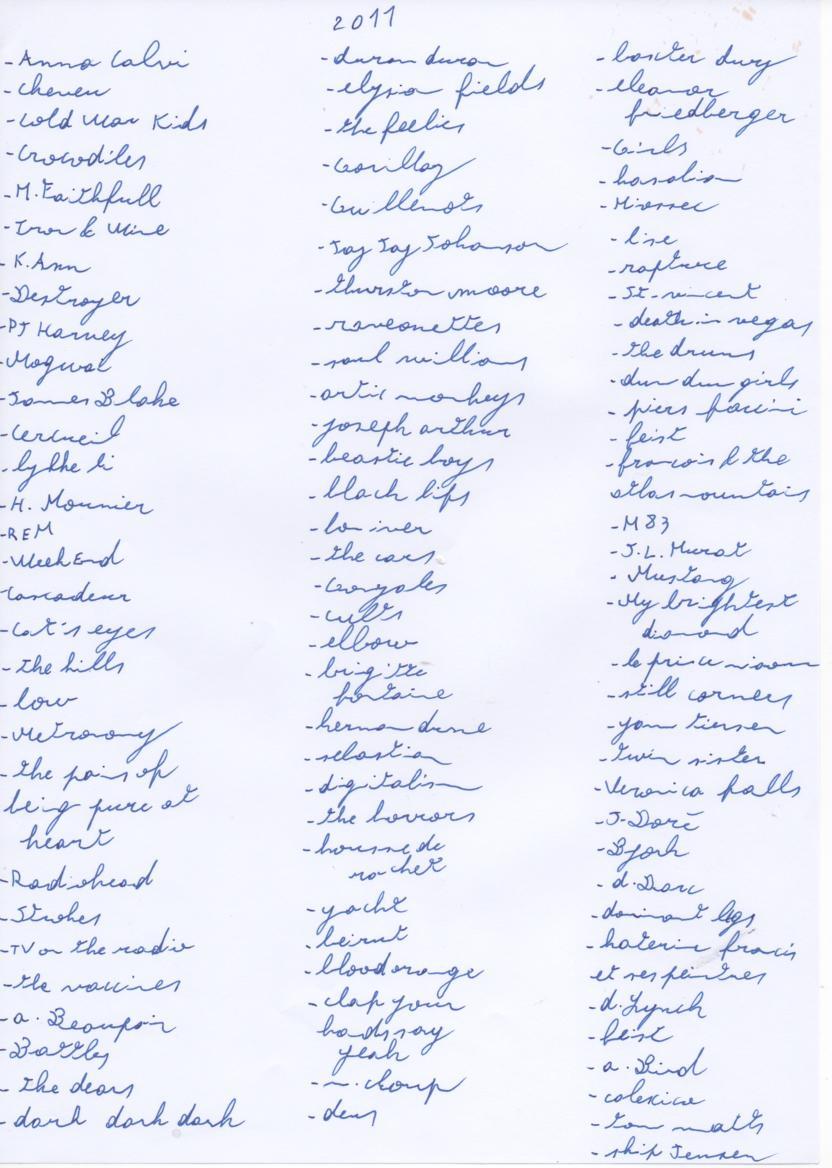 2011
- Anna Calvi
- cheveu
- Cold War Kids
- Crocodiles
- M. Faithfull
- Iron & Wine
- K. Ann
- Destroyer
- PJ Harvey
- Mogwai
- James Blake
- Cercueil
- lykke li
- H. Mounier
- REM
- WeekEnd
Cascadeur
- Cat's eyes
- the kills
- low
- Metronomy
- the pains of
being pure at
heart
- Radiohead
- Strokes
- TV on the radio
- the vaccines
- a. Beaupain
- Battles
- the dears
- dark dark dark
- duran duran
- elysian fields
- the feelies
- Gorillaz
- Guillemots
- Jay Jay Johanson
- thurston moore
- raveonettes
- saul williams
- artic monkeys
- joseph arthur
- beastie boys
- black lips
- bon iver
- the cars
- Gonzales
- cults
- elbow
- brigitte
fontaine
- herman dune
- sebastian
- digitalism
- the horrors
- housse de
racket
- yacht
- beirut
- blood orange
- clap your
hands say
yeah
- n. chorup
- deus
- baxter dury
- eleanor
friedberger
- Girls
- kasabian
- Miossec
- lise
- rapture
- St-vincent
- death in vegas
- the drums
- dum dum girls
- piers faccini
- feist
- francois & the
atlas mountais
- M83
- J.L. Murat
- Mustang
- My brightest
diamond
- le prince miiaou
- still corners
- yann tiersen
- twin sister
- Veronica falls
- J. Doré
- Bjork
- d. Darc
- dominant legs
- katerine francis
et ses peintres
- d. Lynch
- feist
- a. Bird
- calexico
- tom waits
- skip Jensen